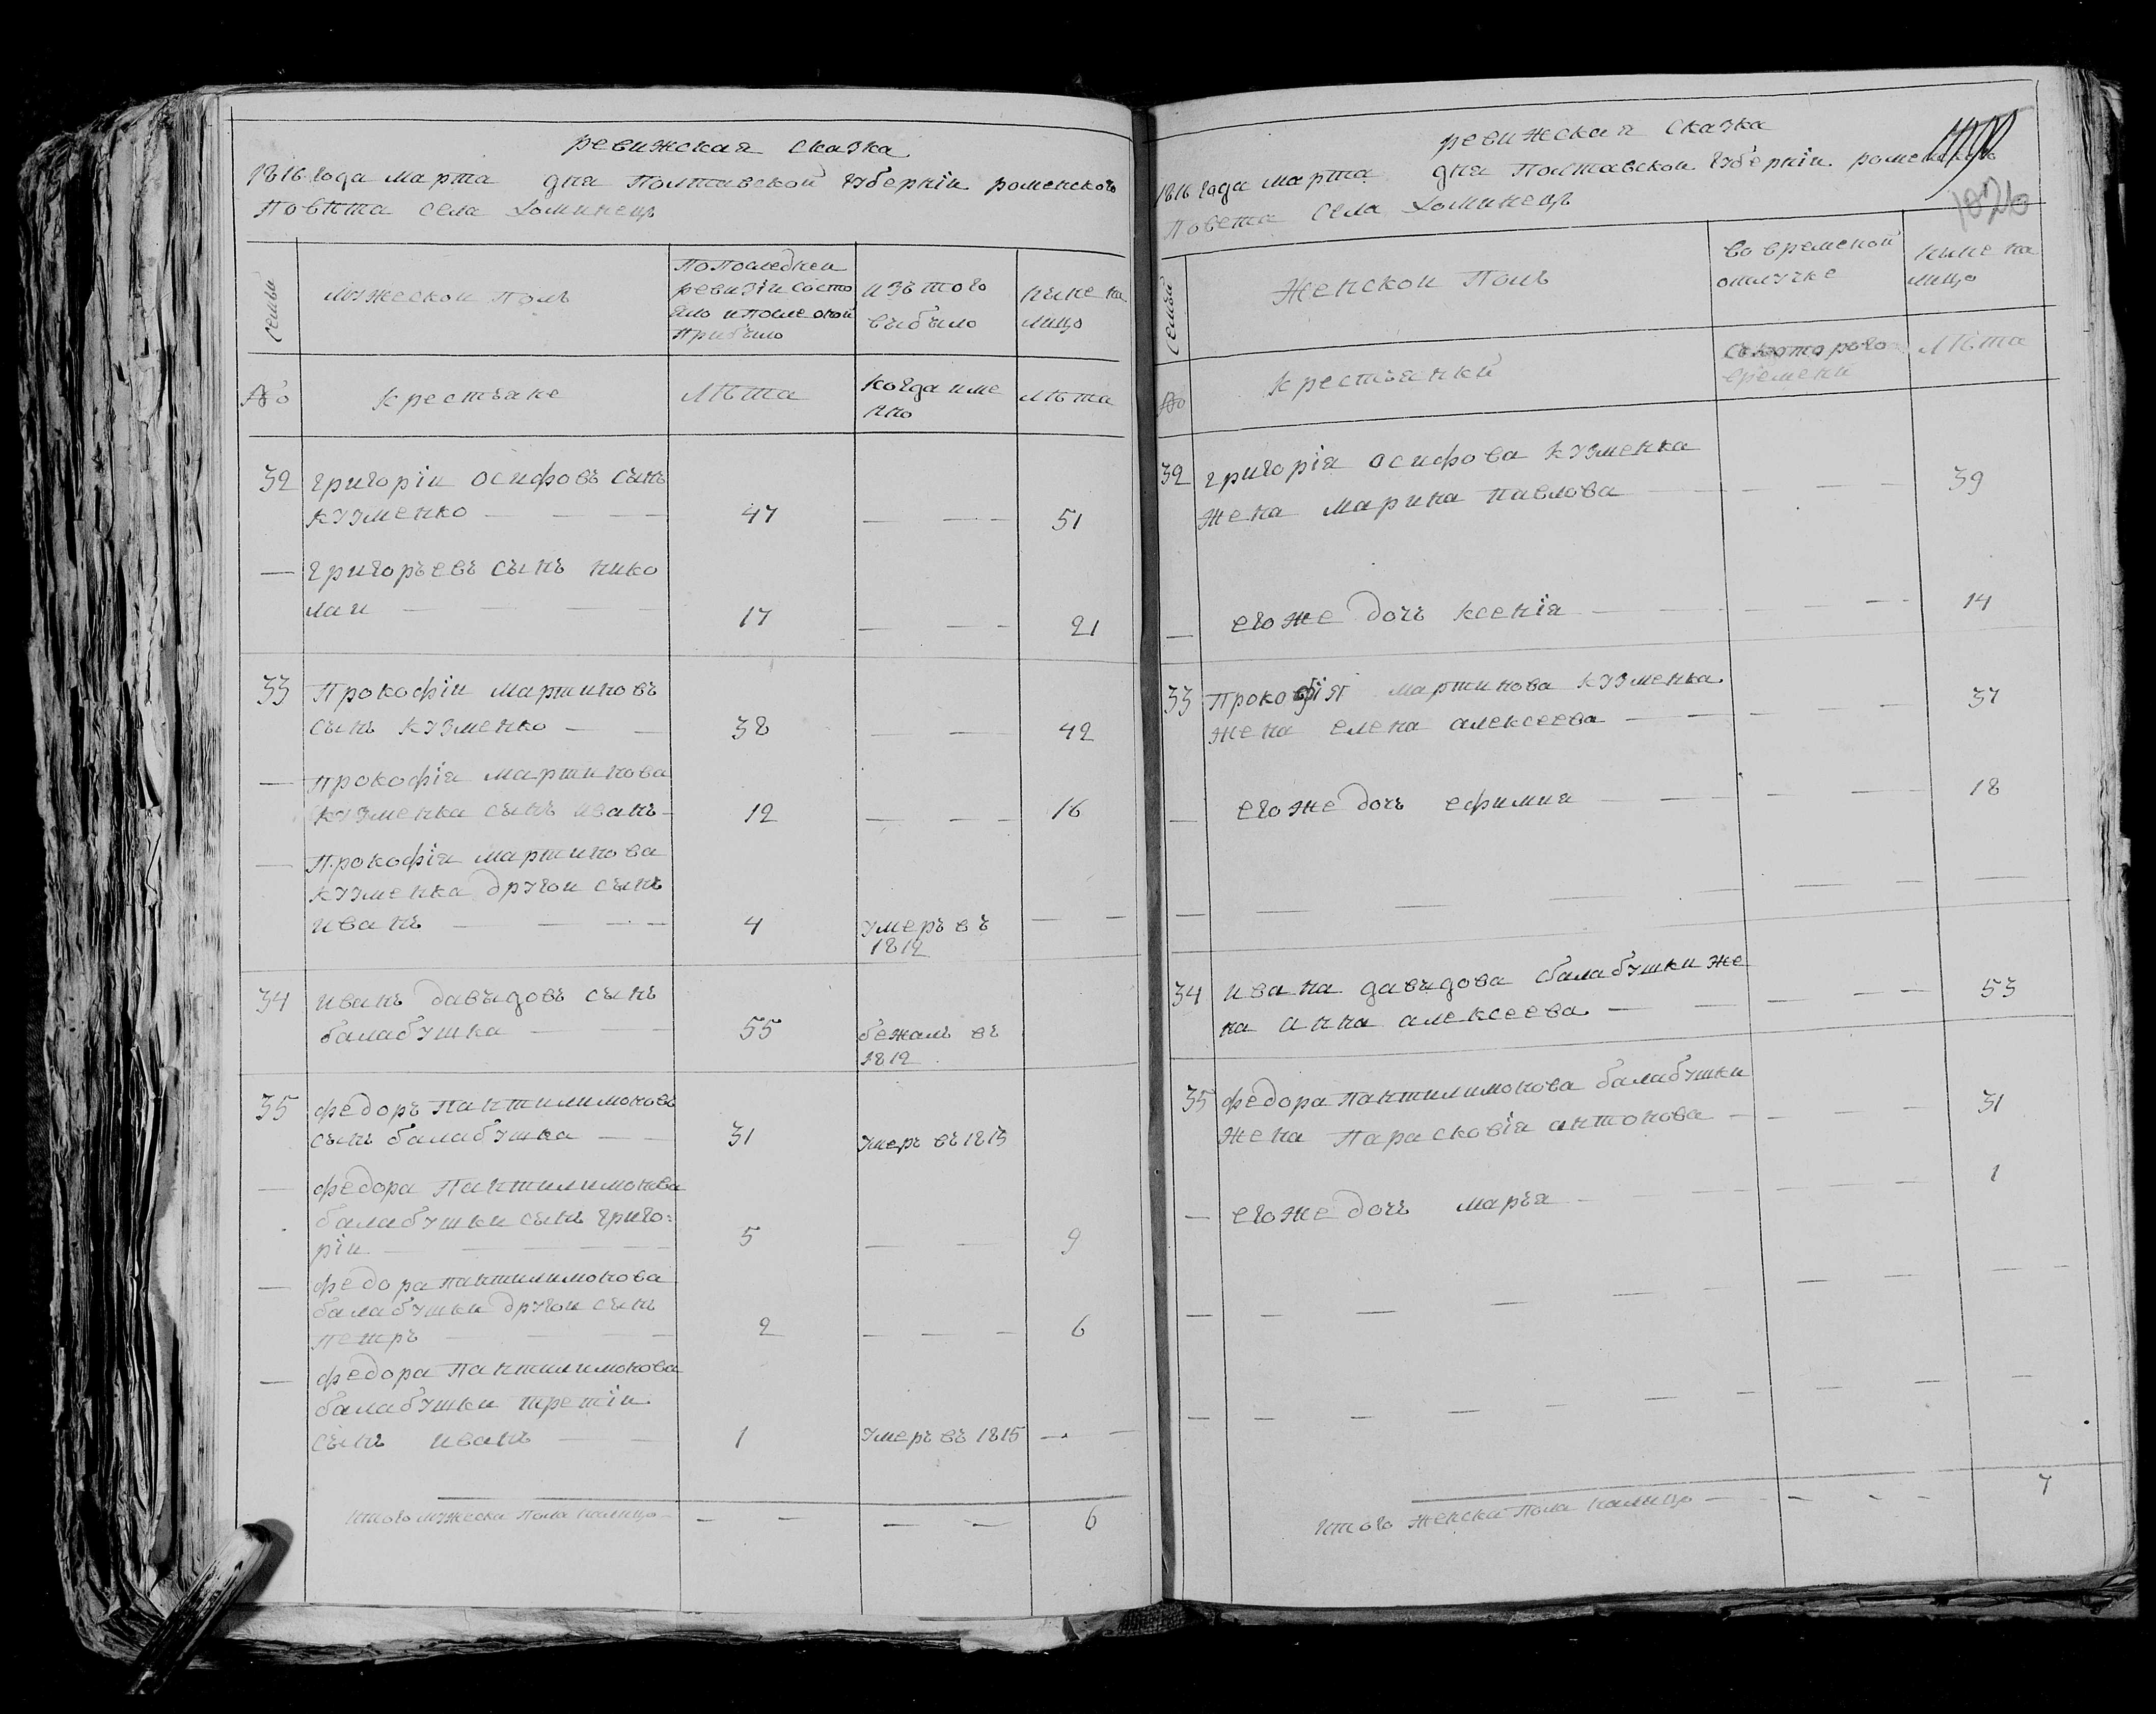 ревижская сказка
1816 года марта дня Полтавской губернiи роменского
Повѣта села Хоминецъ
семьи
мужескои полъ
по последней
ревизiи состо
яло и после оной
прибыло
изъ того
выбыло
ныне на
лицо
№
крестьяне
лѣта
когда име
нно
лѣта
32 григорiи осифовъ сынъ
кузменко — — — 47 — — — 51
— григорьевъ сынъ нико
лаи — — — — 17 — — — 21
33 Прокофiи мартиновъ
сынъ кузменко — — 38 — — 42
— Прокофiя мартинова
кузменка сынъ иванъ — 12 — — — 16
— Прокофiя мартинова
кузменка другои сынъ
иванъ — — — — 4 умеръ въ — —
1812
34 иванъ давыдовъ сынъ
балабушка — — — 55 бежалъ въ
1812
35 федоръ пантилимоновъ
сынъ балабушка — — 31 умеръ въ 1813
— федора пантилимонова
балабушки сынъ григо=
рiи — — — — 5 — — 9
— федора пантилимонова
балабушки другои сынъ
петръ — — — 2 — — — 6
— федора пантилимонова
балабушки третiи
сынъ иванъ — — 1 умеръ въ 1815 — —
итого мужеска пола налицо — — — — — 6
ревижская сказка
1816 года марта дня Полтавской губернiи
Повета села Хоминецъ
1026
семьи
Женской полъ
во временной
отлучке
ныне на
лицо
№
крестьянки
съ которого
времени
лѣта
32 григорiя осифова кузменка
жена марина павлова — — — — 39
— его же дочь ксенiя — — — — — 14
33 Прокофiя мартинова кузменка
жена елена алексеева — — — — — 37
— его же дочь ефимия — — — — — 18
— — — — — — — —
34 ивана давыдова балабушки же
на анна алексеева — — — — — 53
35 федора пантилимонова балабушки
жена парасковiя антонова — — — — 31
— его же дочь марья — — — — — — 1
— — — — — — — — —
— — — — — — — — — —
итого женска пола налицо — — — — 7